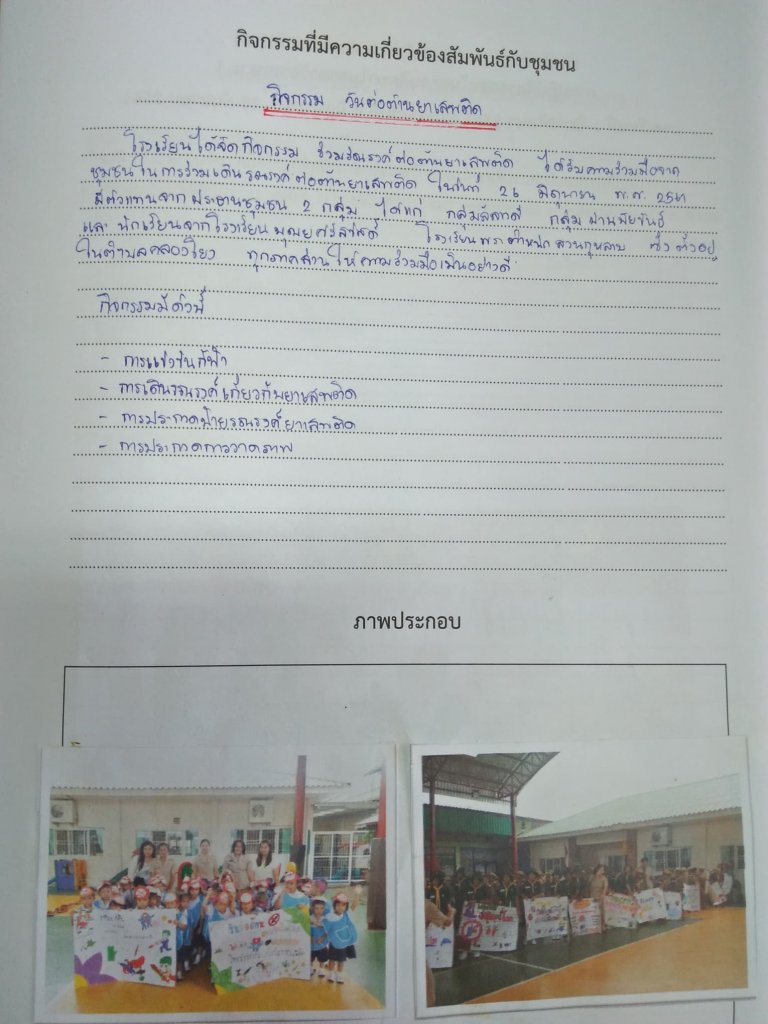 กิจกรรมที่มีความเกี่ยวข้องสัมพันธ์กับชุมชน
กิจกรรม วันต่อต้านยาเสพติด
โรงเรียนได้จัดกิจกรรม ร่วมรณรงค์ต่อต้านยาเสพติด ได้รับความร่วมมือจาก
ชุมชนในการร่วมเดินรณรงค์ต่อต้านยาเสพติด ในวันที่ 26 มิถุนายน พ.ศ. 2561
มีตัวแทนจากประธานชุมชน 2 กลุ่ม ได้แก่ กลุ่มลัดาวดี กลุ่ม
และ นักเรียนจากโรงเรียนบุณยศรีสวัสดิ์ โรงเรียนพระตำหนักสวนกุหลาบ ซึ่งตั้งอยู่
ในตำบลคลองโยง ทุกภาคส่วนให้ความร่วมมือเป็นอย่างดี
กิจกรรมมีดังนี้
- การแข่งขันกีฬา
- การเดินรณรงค์เกี่ยวกับยาเสพติด
- การประกวดป้ายรณรงค์ยาเสพติด
- การประกวดการวาดภาพ
ภาพประกอบ